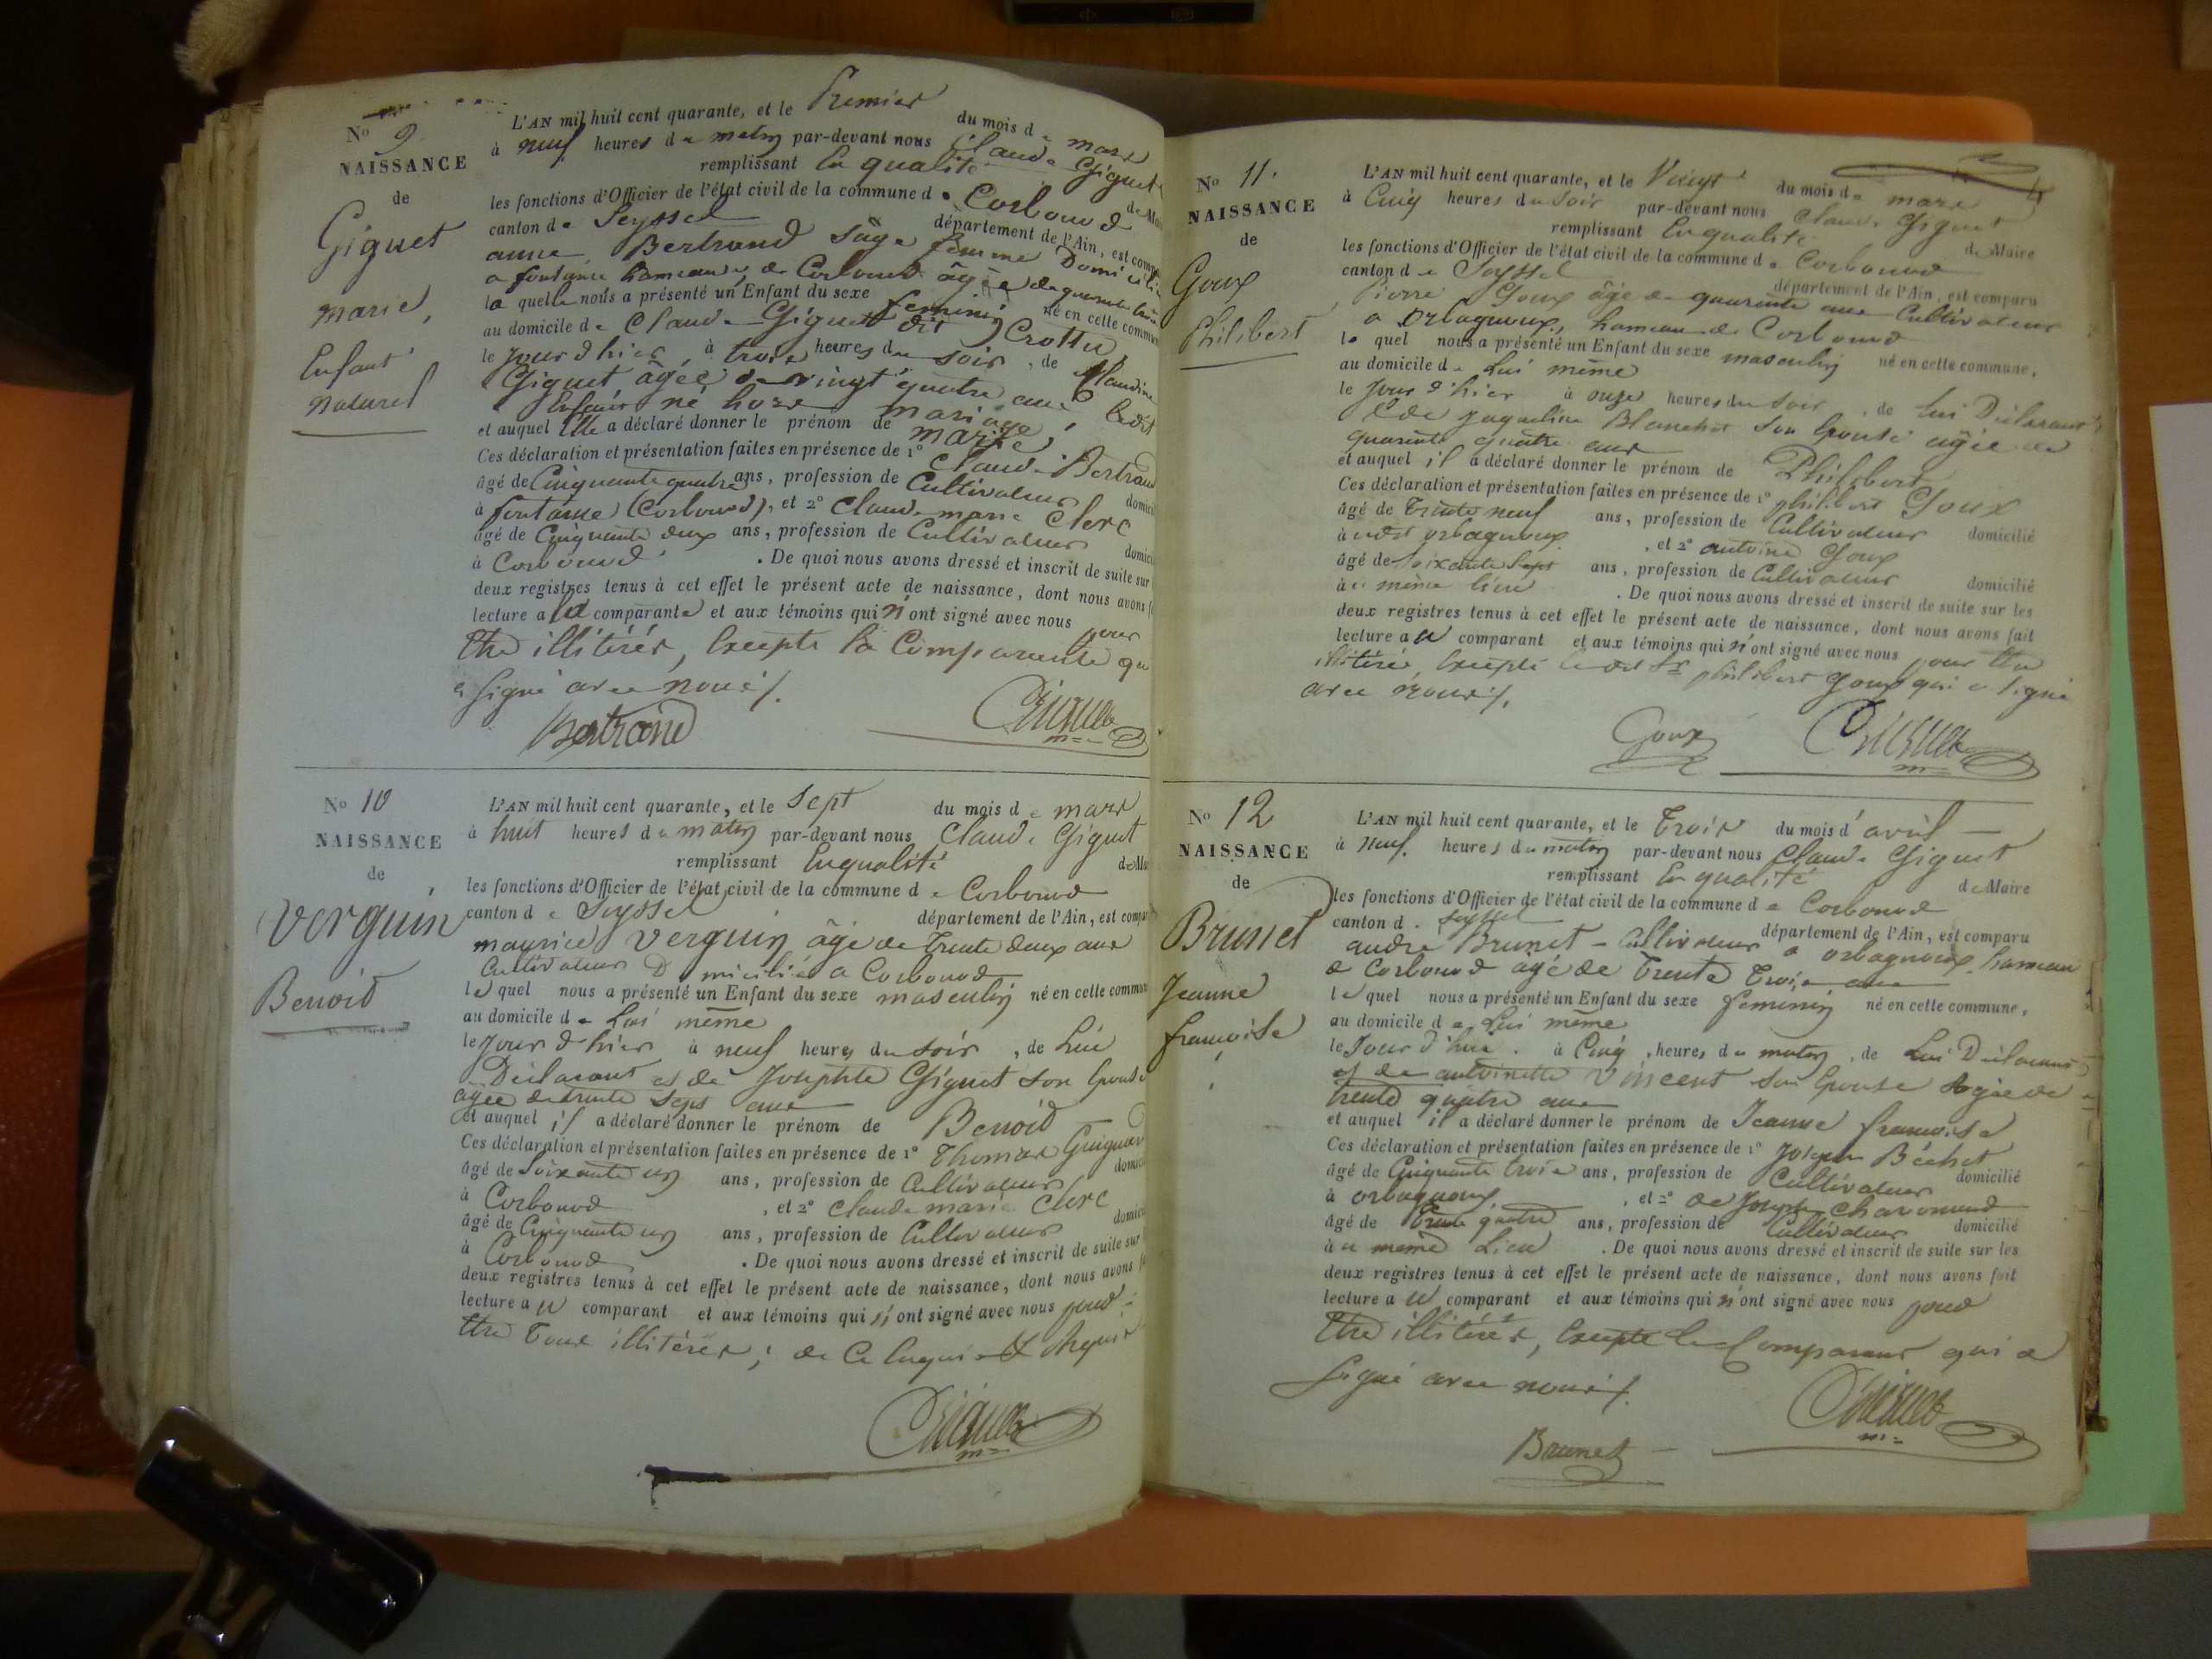 N° 9
NAISSANCE
de
Giguet
marie,
Enfant
naturel
L'AN mil huit cent quarante, et le Premier du mois de mars
à neuf heures du matin par-devant nous Claude Giguet
remplissant En qualité de Ma
les fonctions d'Officier de l'état civil de la commune de Corbonod
canton de Seyssel département de l'Ain, est comp
anne Bertrand sage femme Domicilié
a fontaine hameau de Corbonod âgée de quarante
la quelle nous a présenté un Enfant du sexe feminin né en cette commun
au domicile de Claude Giguet dit Crottu
le jour d'hier, à trois heures du soir, de Claudine
Giguet âgée de vingt quatre ans
Enfant né hors mariage,
et auquel Elle a déclaré donner le prénom de marie
Ces déclaration et présentation faites en présence de 1° Claude Bertrand
âgé de Cinquante quatre ans, profession de Cultivateur domici
à fontaine (Corbonod), et 2° Claude marie Clerc
âgé de Cinquante deux ans, profession de Cultivateur domici
à Corbonod. De quoi nous avons dressé et inscrit de suite sur
deux registres tenus à cet effet le présent acte de naissance, dont nous avons f
lecture a la comparante et aux témoins qui n'ont signé avec nous pour
Etre illitérés, Excepté la Comparante qu
a signé avec nous /.
Bertrand
Giguet
m=
N° 10
NAISSANCE
de
Verguin
Benoid
L'AN mil huit cent quarante, et le Sept du mois de mars
à huit heures du matin par-devant nous Claude Giguet
remplissant En qualité de Ma
les fonctions d'Officier de l'état civil de la commune de Corbonod
canton de Seyssel département de l'Ain, est compar
maurice Verguin âgé de trente deux ans
Cultivateur Domicilié a Corbonod
le quel nous a présenté un Enfant du sexe masculin né en cette commun
au domicile de Lui même
le jour d'hier à neuf heures du soir, de Lui
Déclarant et de Josephte Giguet son Epouse
agée de trente sept ans
et auquel il a déclaré donner le prénom de Benoid
Ces déclaration et présentation faites en présence de 1° Thomas
âgé de Soixante un ans, profession de Cultivateur domici
à Corbonod, et 2° Claude marie Clerc
âgé de Cinquante un ans, profession de Cultivateur domici
à Corbonod. De quoi nous avons dressé et inscrit de suite sur
deux registres tenus à cet effet le présent acte de naissance, dont nous avons f
lecture a u comparant et aux témoins qui n'ont signé avec nous pour
Etre tous illitérés; de Ce Enquis et Requis
Giguet
m=
N° 11.
NAISSANCE
de
Goux
Philibert
L'AN mil huit cent quarante, et le Vingt du mois de mars
à Cinq heures du soir par-devant nous Claude Giguet
remplissant En qualité de Maire
les fonctions d'Officier de l'état civil de la commune de Corbonod
canton de Seyssel département de l'Ain, est comparu
Pierre Goux âgé de quarante ans Cultivateur
a Orbagnoux, hameau de Corbonod
le quel nous a présenté un Enfant du sexe masculin né en cette commune,
au domicile de Lui même
le jour d'hier à onze heures du soir, de Lui Déclarant,
& de jaqueline Blanchet son Epouse agée de
quarante quatre ans
et auquel il a déclaré donner le prénom de Philibert
Ces déclaration et présentation faites en présence de 1° philibert Goux
âgé de trente neuf ans, profession de Cultivateur domicilié
à udit orbagnoux, et 2° antoine Goux
âgé de Soixante Sept ans, profession de Cultivateur domicilié
à u même lieu. De quoi nous avons dressé et inscrit de suite sur les
deux registres tenus à cet effet le présent acte de naissance, dont nous avons fait
lecture a u comparant et aux témoins qui n'ont signé avec nous pour Etre
illitérés, Excepté le dit Sr philibert Goux qui a signé
avec nous /.
Goux
Giguet
m=
N° 12
NAISSANCE
de
Brunet
Jeanne
francoise
L'AN mil huit cent quarante, et le Trois du mois d'avril
à neuf heures du matin par-devant nous Claude Giguet
remplissant En qualité de Maire
les fonctions d'Officier de l'état civil de la commune de Corbonod
canton d. Seyssel département de l'Ain, est comparu
andré Brunet - Cultivateur a orbagnoux, hameau
de Corbonod âgé de trente trois ans
le quel nous a présenté un Enfant du sexe feminin né en cette commune,
au domicile de Lui même
le Jour d'hier. à Cinq heures du matin, de Lui Déclarant
et de antoinette Vincent son Epouse agée de
trente quatre ans
et auquel il a déclaré donner le prénom de Jeanne francoise
Ces déclaration et présentation faites en présence de 1° Joseph Béchet
âgé de Cinquante trois ans, profession de Cultivateur domicilié
à orbagnoux, et 2° de Joseph Charomond
âgé de trente quatre ans, profession de Cultivateur domicilié
à u même Lieu. De quoi nous avons dressé et inscrit de suite sur les
deux registres tenus à cet effet le présent acte de naissance, dont nous avons fait
lecture a u comparant et aux témoins qui n'ont signé avec nous pour
Etre illitérés, Excepté le Comparant qui a
signé avec nous /.
Brunet
Giguet
m=